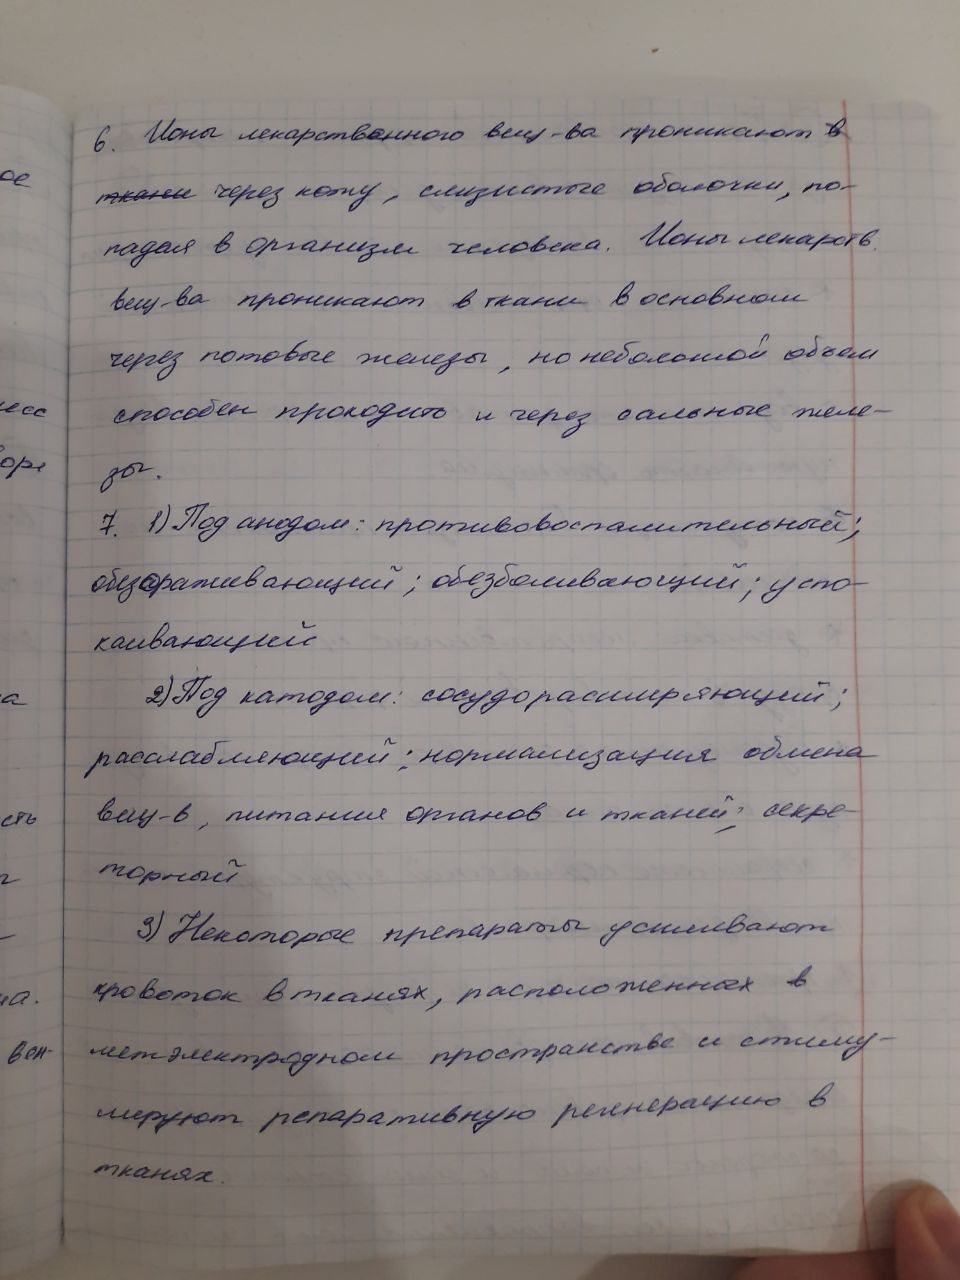 6. Ионы лекарственного вещ-ва проникают в
ткани через кожу, слизистые оболочки, по-
падая в организм человека. Ионы лекарств.
вещ-ва проникают в ткани в основном
через потовые железы, но небольшой объем
способен проходить и через сальные желе-
зы.
7. 1) Под анодом: противовоспалительный;
обезараживающий; обезболивающий; успо-
каивающий
2) Под катодом: сосудорасширяющий;
расслабляющий; нормализация обмена
вещ-в, питания органов и тканей; секре-
торный
3) Некоторые препараты усиливают
кровоток в тканях, расположенных в
межэлектродном пространстве и стиму-
лируют репаративную регенерацию в
тканях.
ое
несс
воре
а
сть
на.
вен-